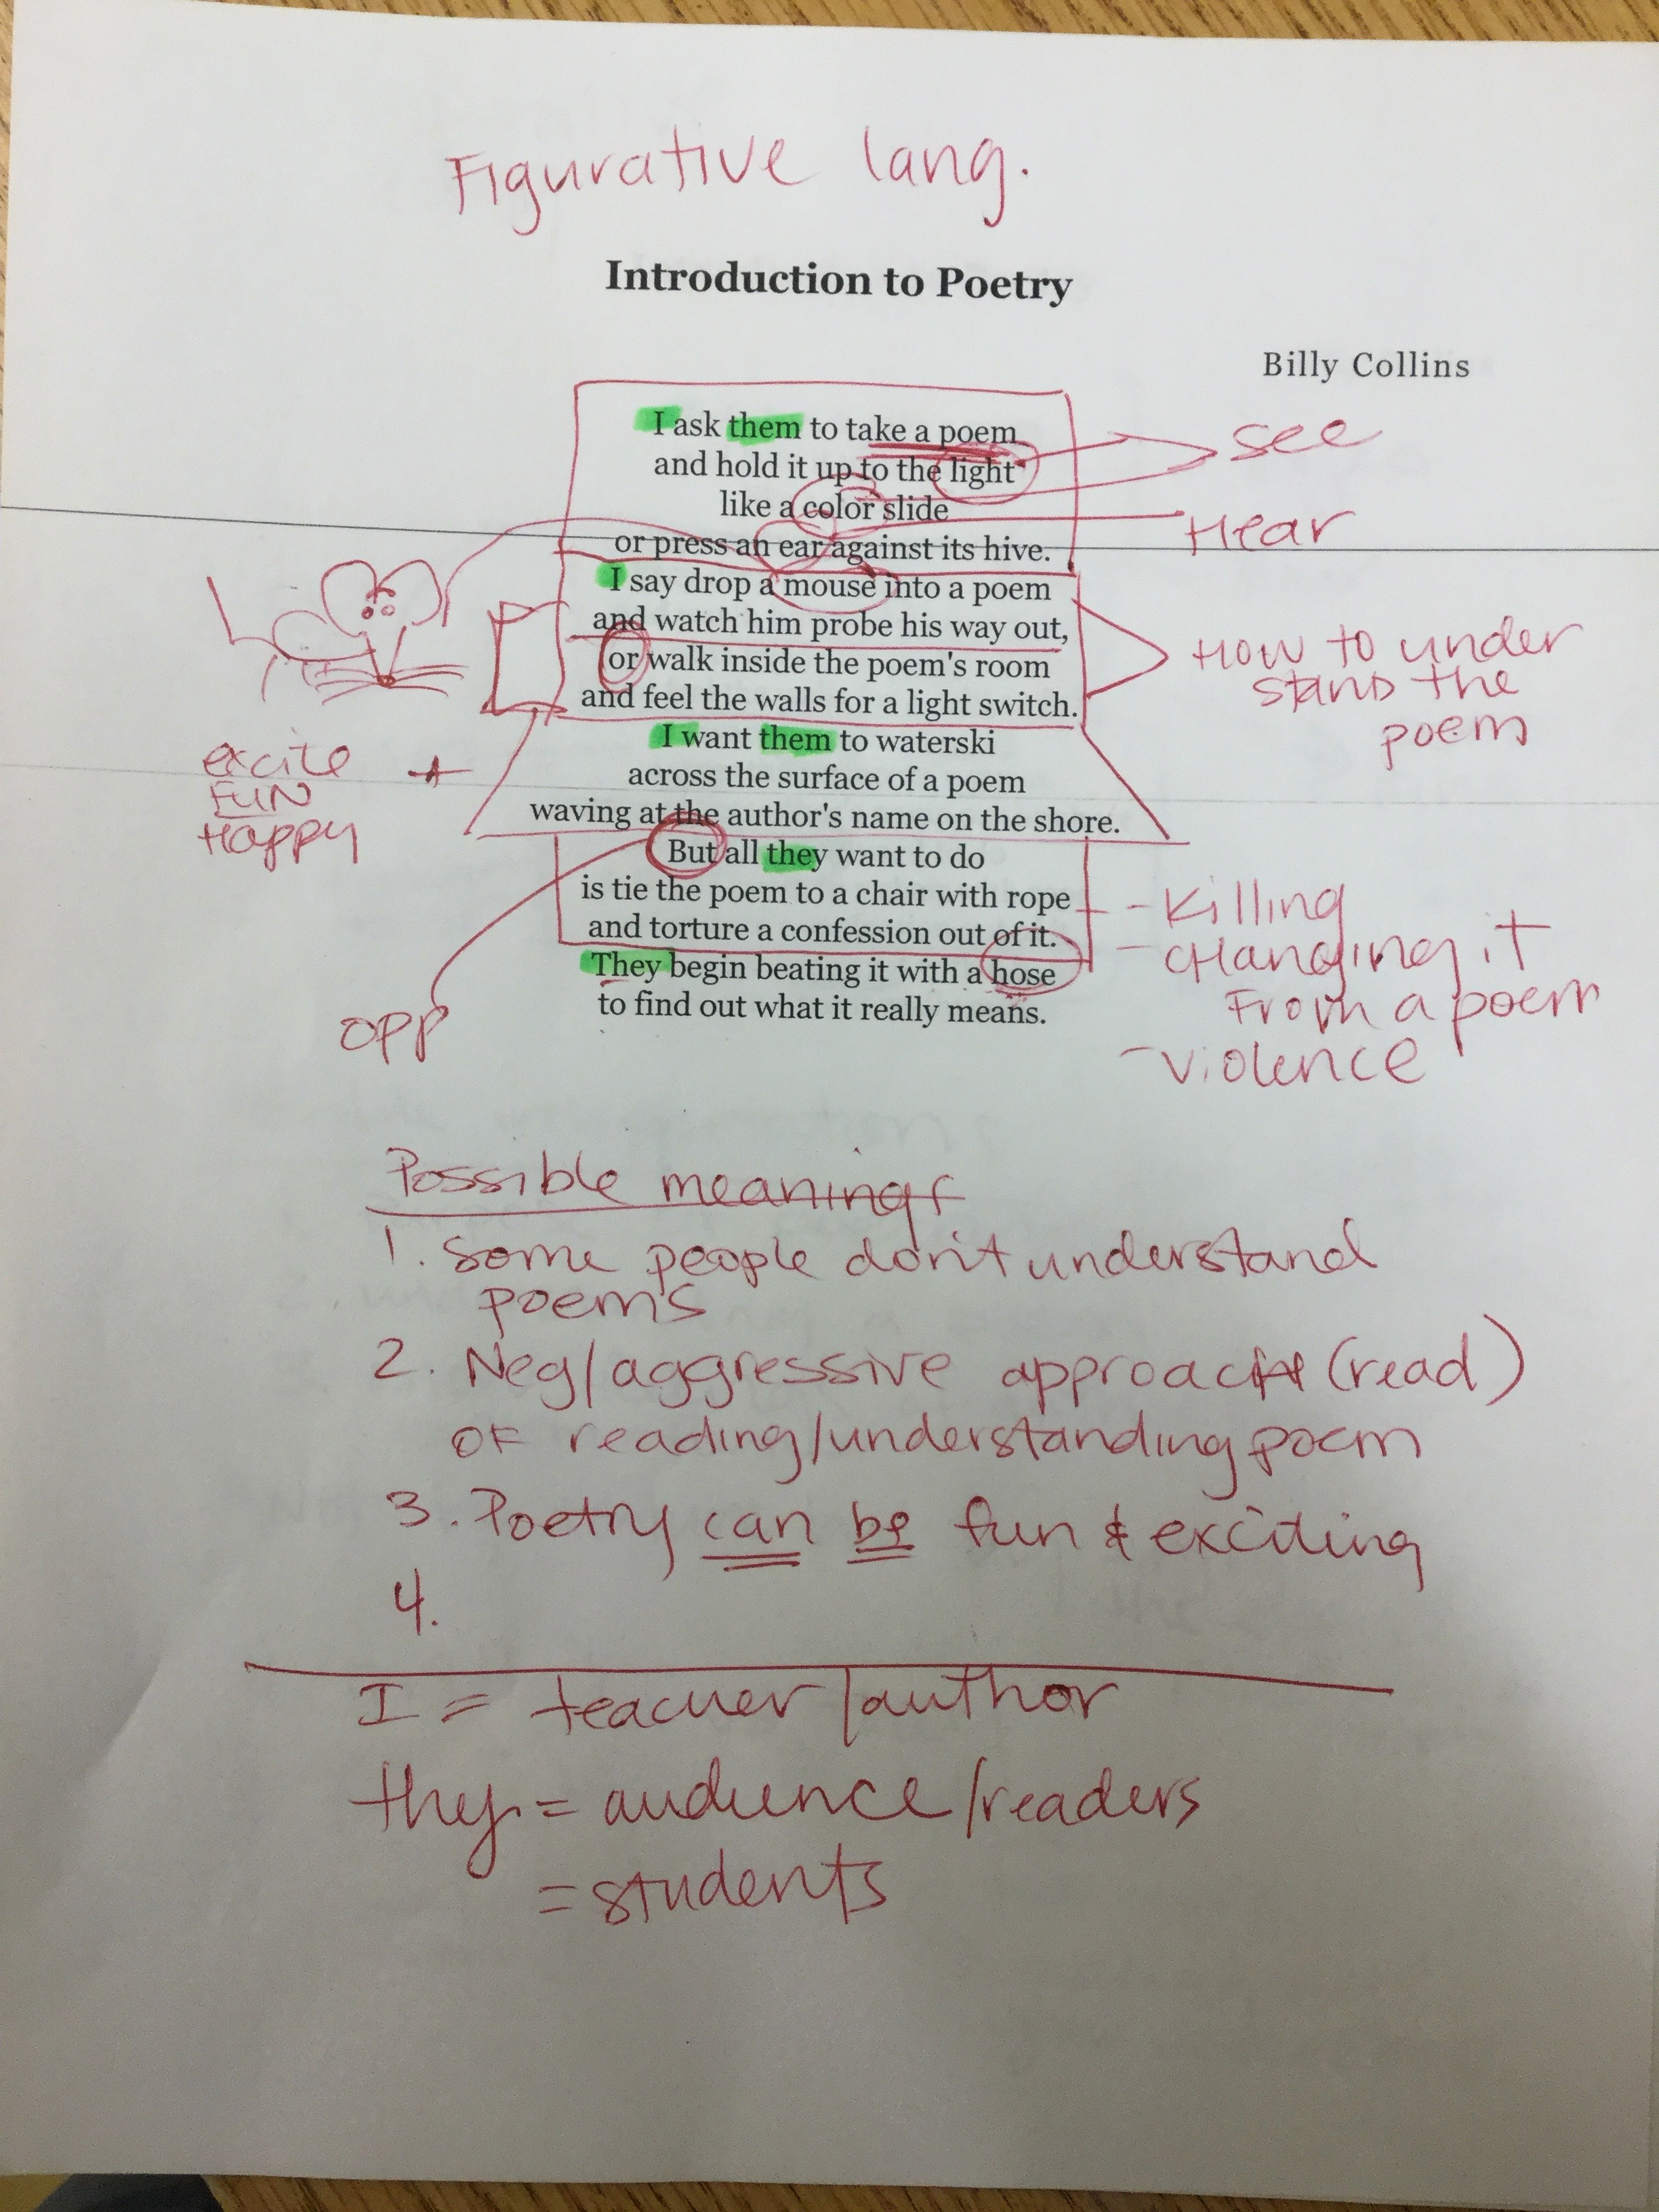 Figurative lang.
Introduction to Poetry
Billy Collins
I ask them to take a poem
and hold it up to the light
like a color slide
or press an ear against its hive.
I say drop a mouse into a poem
and watch him probe his way out,
or walk inside the poem's room
and feel the walls for a light switch.
I want them to waterski
across the surface of a poem
waving at the author's name on the shore.
But all they want to do
is tie the poem to a chair with rope
and torture a confession out of it.
They begin beating it with a hose
to find out what it really means.
see
Hear
How to under
stand the
poem
excite +
FUN
Happy
opp
- Killing
- CHanging it
From a poem
- violence
Possible meanings
1. Some people don't understand
poems
2. Neg/aggressive approach (read)
of reading/understanding poem
3. Poetry can be fun & exciting
4.
I = teacher/author
they = audience/readers
= students